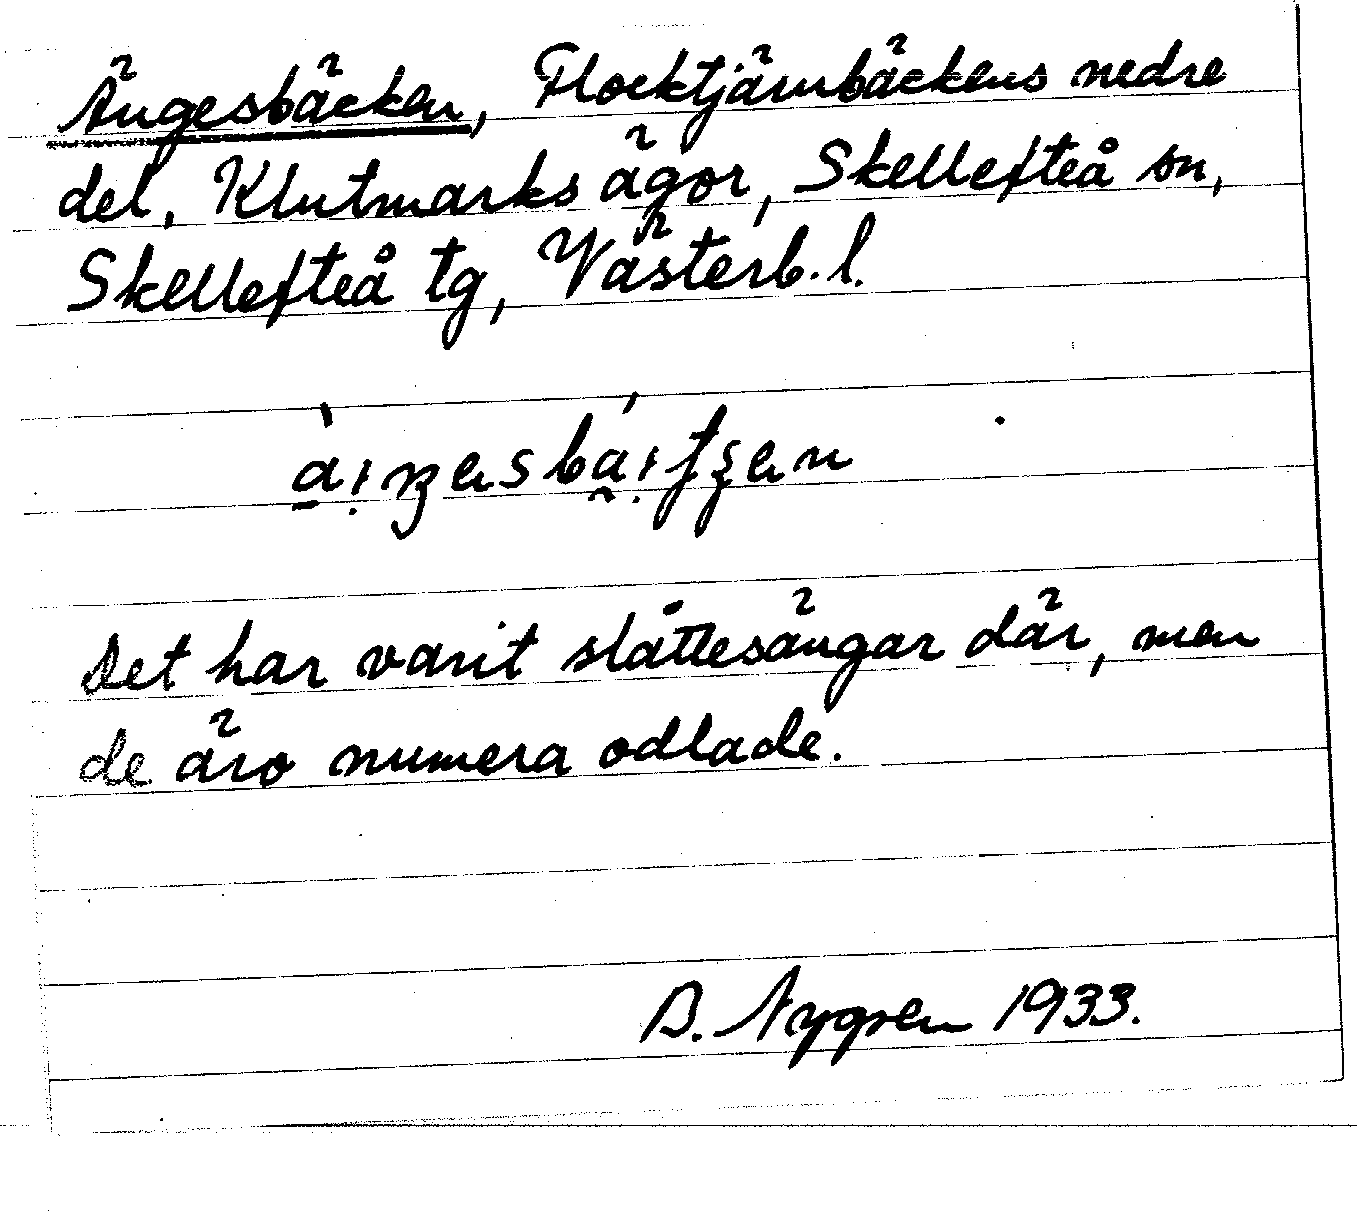 Ängesbäcken, Flocktjärnbäckens nedre
del, Klutmarks ägor, Skellefteå sn,
Skellefteå tg, Västerb. l.
Det har varit slåttesängar där, men
de äro numera odlade.
B. Nygren 1933.